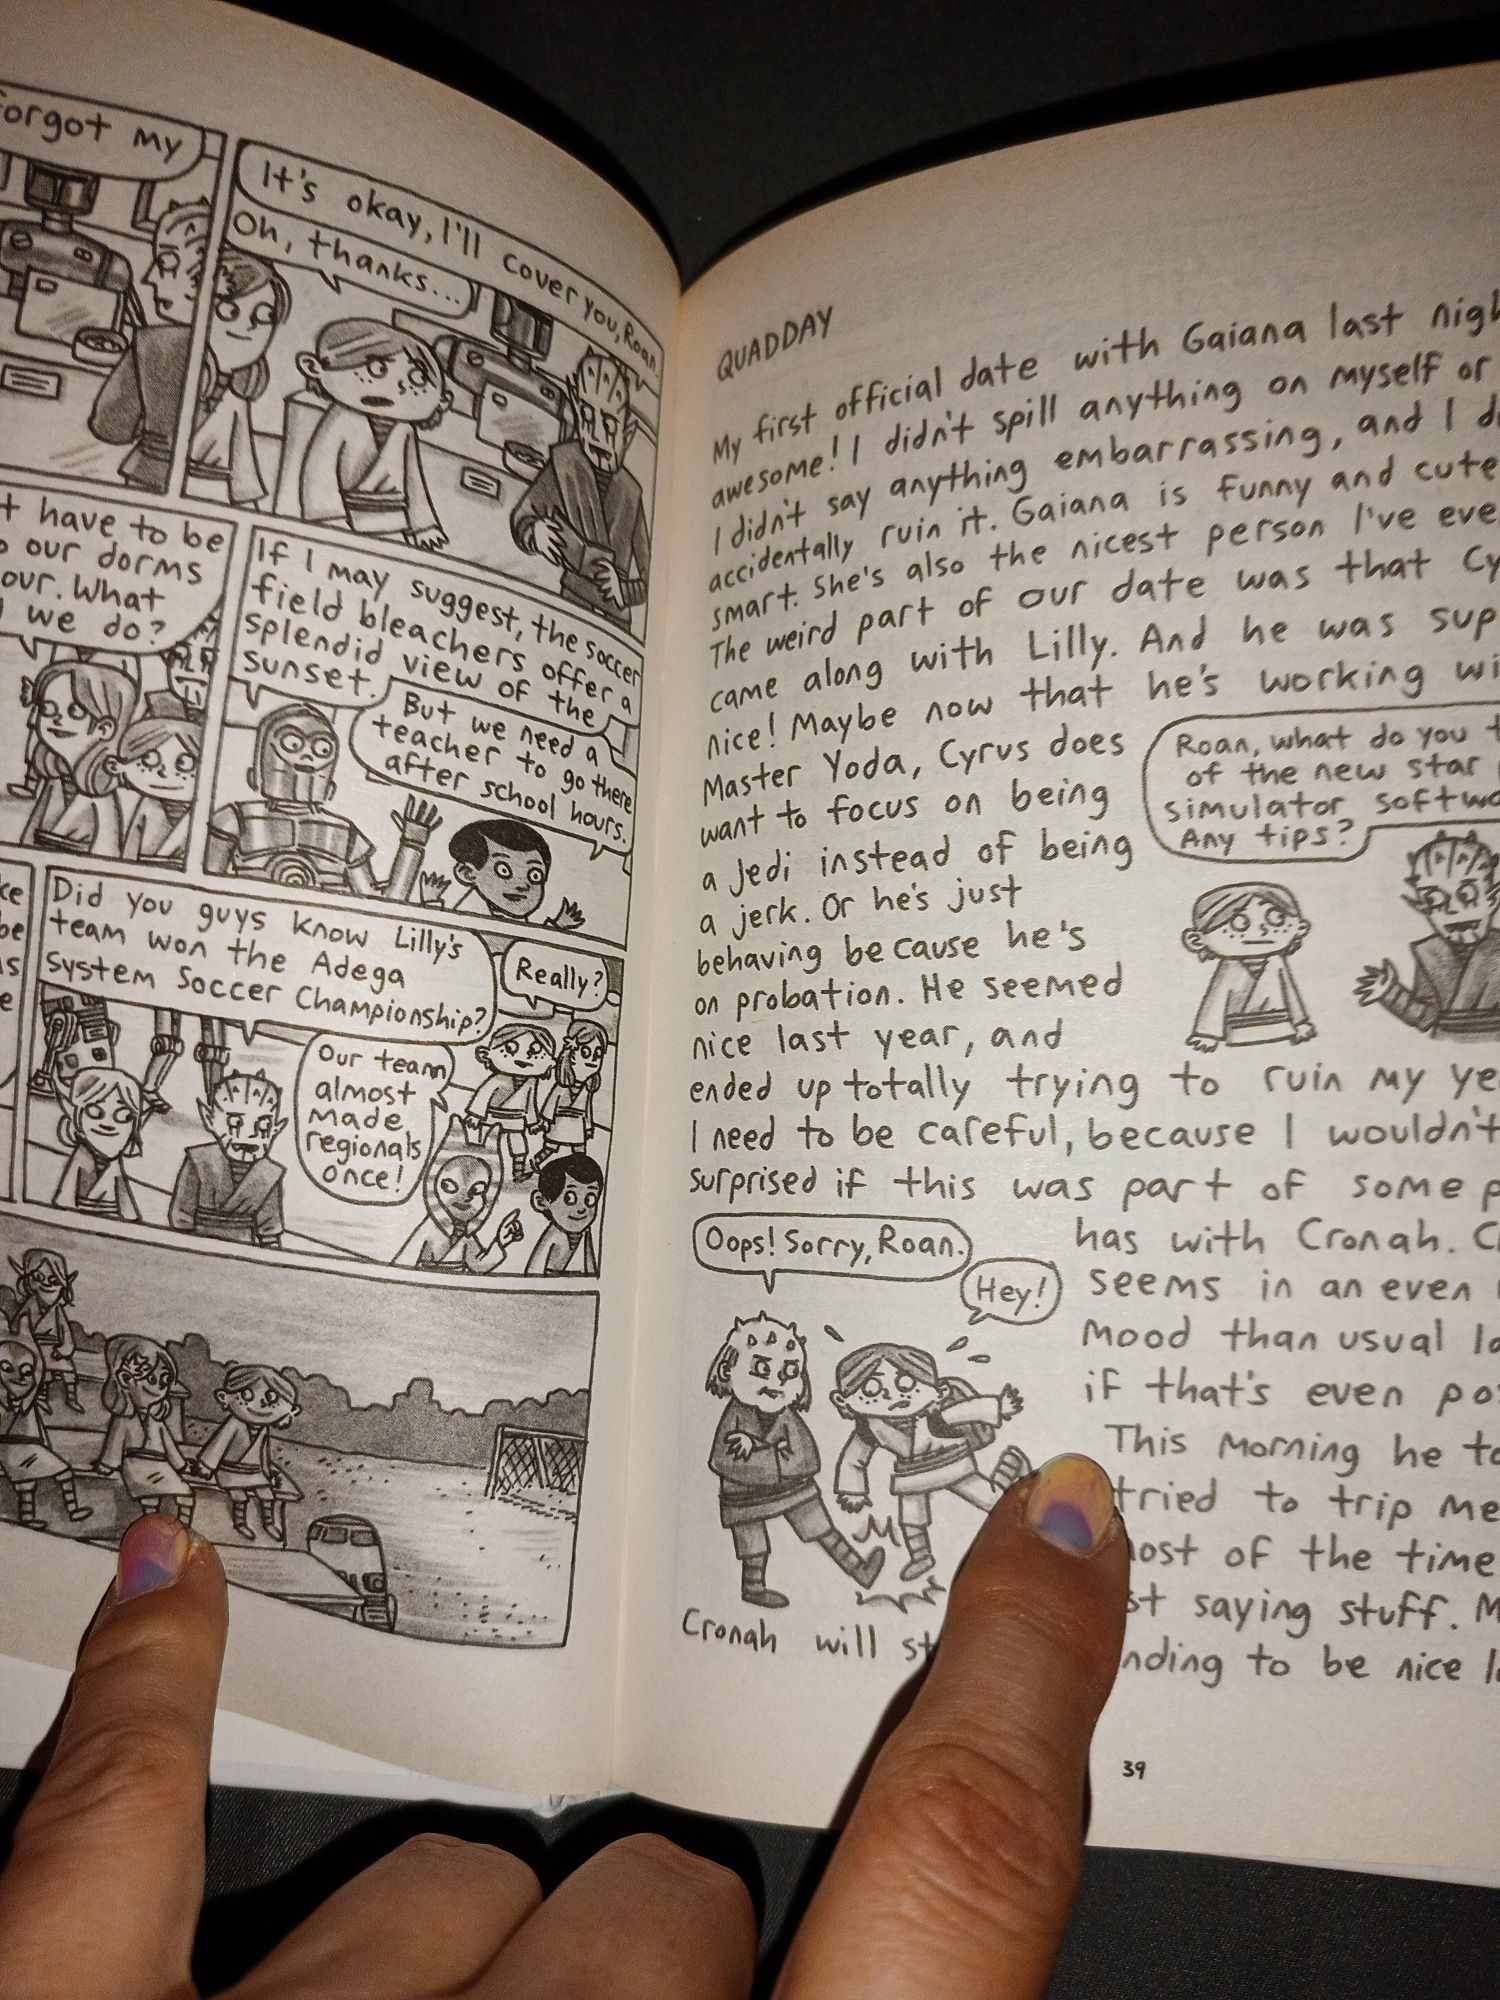 forgot my
It's okay, I'll cover you, Roan.
Oh, thanks...
have to be
our dorms
our. What
we do?
If I may suggest, the soccer
field bleachers offer a
splendid view of the
sunset.
But we need a
teacher to go there
after school hours.
Did you guys know Lilly's
team won the Adega
System Soccer Championship?
Really?
Our team
almost
made
regionals
once!
QUADDAY
My first official date with Gaiana last
awesome! I didn't spill anything on myself or
I didn't say anything embarrassing, and I
accidentally ruin it. Gaiana is funny and cute
smart. She's also the nicest person I've
The weird part of our date was that
came along with Lilly. And he was
nice! Maybe now that he's working
Master Yoda, Cyrus does
want to focus on being
a Jedi instead of being
a jerk. Or he's just
behaving because he's
on probation. He seemed
nice last year, and
ended up totally trying to ruin my
I need to be careful, because I wouldn't
surprised if this was part of some
Roan, what do you
of the new star
simulator
Any tips?
has with Cronah.
seems in an even
mood than usual
if that's even
This morning he
tried to trip me
of the time
saying stuff.
to be nice
Oops! Sorry, Roan.
Hey!
Cronah will
39